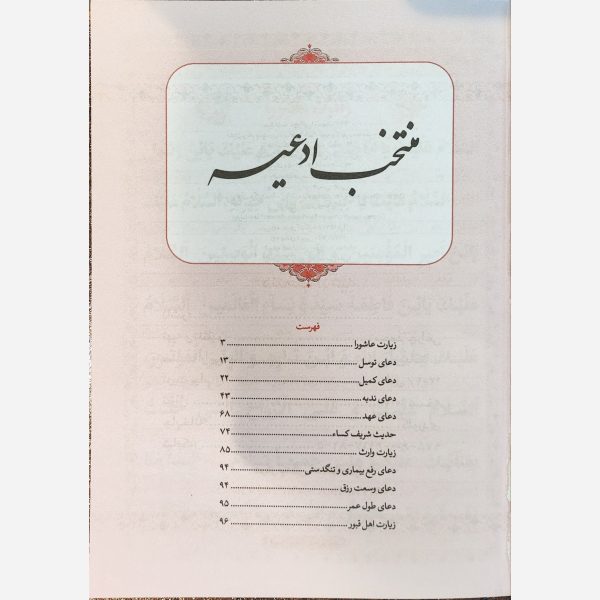 منتخب ادعیه
فهرست
زیارت عاشورا ........ ۳
دعای توسل ........ ۱۳
دعای کمیل ........ ۲۲
دعای ندبه ........ ۴۳
دعای عهد ........ ۶۸
حدیث شریف کساء ........ ۷۴
زیارت وارث ........ ۸۵
دعای رفع بیماری و تنگدستی ........ ۹۴
دعای وسعت رزق ........ ۹۴
دعای طول عمر ........ ۹۵
زیارت اهل قبور ........ ۹۶